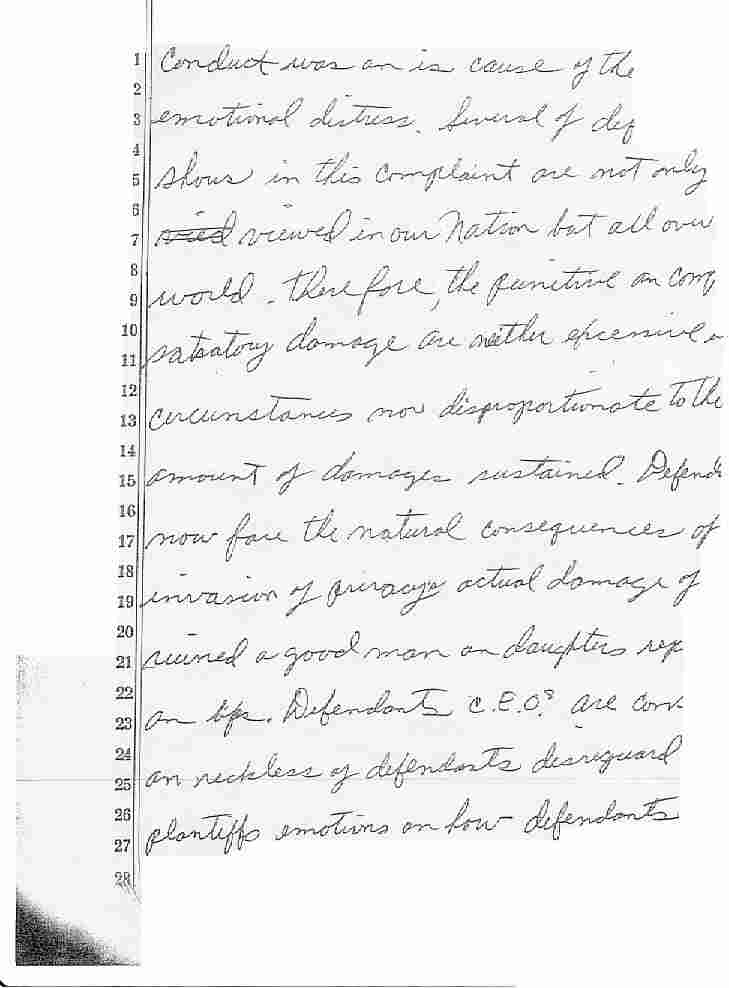 1 Conduct was an is cause of the
2
3 emotional distress. Several of def
4
5 shows in this complaint are not only
6
7 viewed in our Nation but all over
8
9 world. Therefore, the punitive an comp
10
11 satatory damage are neither excessive
12
13 circumstances nor disproportionate to the
14
15 amount of damages sustained. Defend
16
17 now face the natural consequences of
18
19 invasion of privacy actual damage of
20
21 ruined a good man an daughters rep
22
23 an Defendants C.E.O? are
24
25 an reckless of defendants disreguard
26
27 plantiffs emotions an how defendants
28